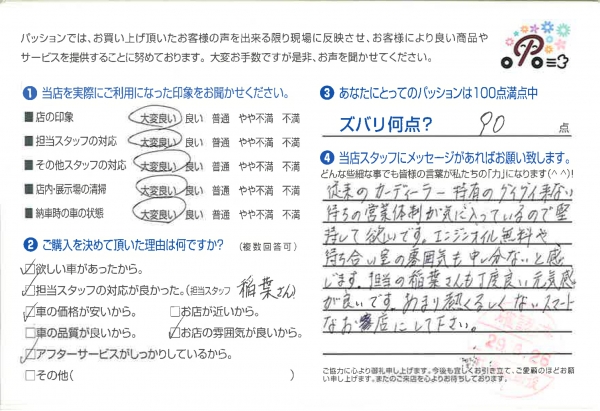 パッションでは、お買い上げ頂いたお客様の声を出来る限り現場に反映させ、お客様により良い商品や
サービスを提供することに努めております。 大変お手数ですが是非、お声を聞かせてください。
❶ 当店を実際にご利用になった印象をお聞かせください。
■店の印象 大変良い 良い 普通 やや不満 不満
■担当スタッフの対応 大変良い 良い 普通 やや不満 不満
■その他スタッフの対応 大変良い 良い 普通 やや不満 不満
■店内・展示場の清掃 大変良い 良い 普通 やや不満 不満
■納車時の車の状態 大変良い 良い 普通 やや不満 不満
❷ ご購入を決めて頂いた理由は何ですか? (複数回答可)
□欲しい車があったから。
□担当スタッフの対応が良かった。(担当スタッフ 稲葉さん)
□車の価格が安いから。 □お店が近いから。
□車の品質が良いから。 □お店の雰囲気が良いから。
□アフターサービスがしっかりしているから。
□その他( )
❸ あなたにとってのパッションは100点満点中
ズバリ何点? 90 点
❹ 当店スタッフにメッセージがあればお願い致します。
どんな些細な事でも皆様の言葉が私たちの「力」になります(^^)!
従来のカーディーラー特有のグイグイ来ない
待ちの営業体制が気に入っているので堅
持して欲いです。エンジンオイル無料や
待ち合い室の雰囲気も申し分ないと感
じます。担当の稲葉さんも丁度良い元気感
が良いです。あまり熱くるしくないスマート
なお店にして下さい。
ご協力に心より御礼申し上げます。今後も宜しくお引き立て、ご愛顧のほどお願
い申し上げます。またのご来店を心よりお待ちしております。